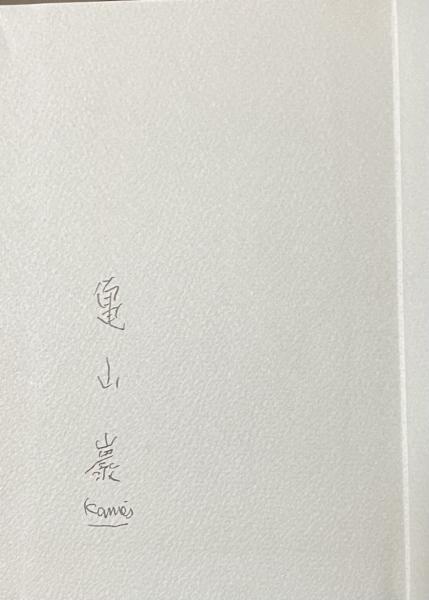 亀山巌
Kame's